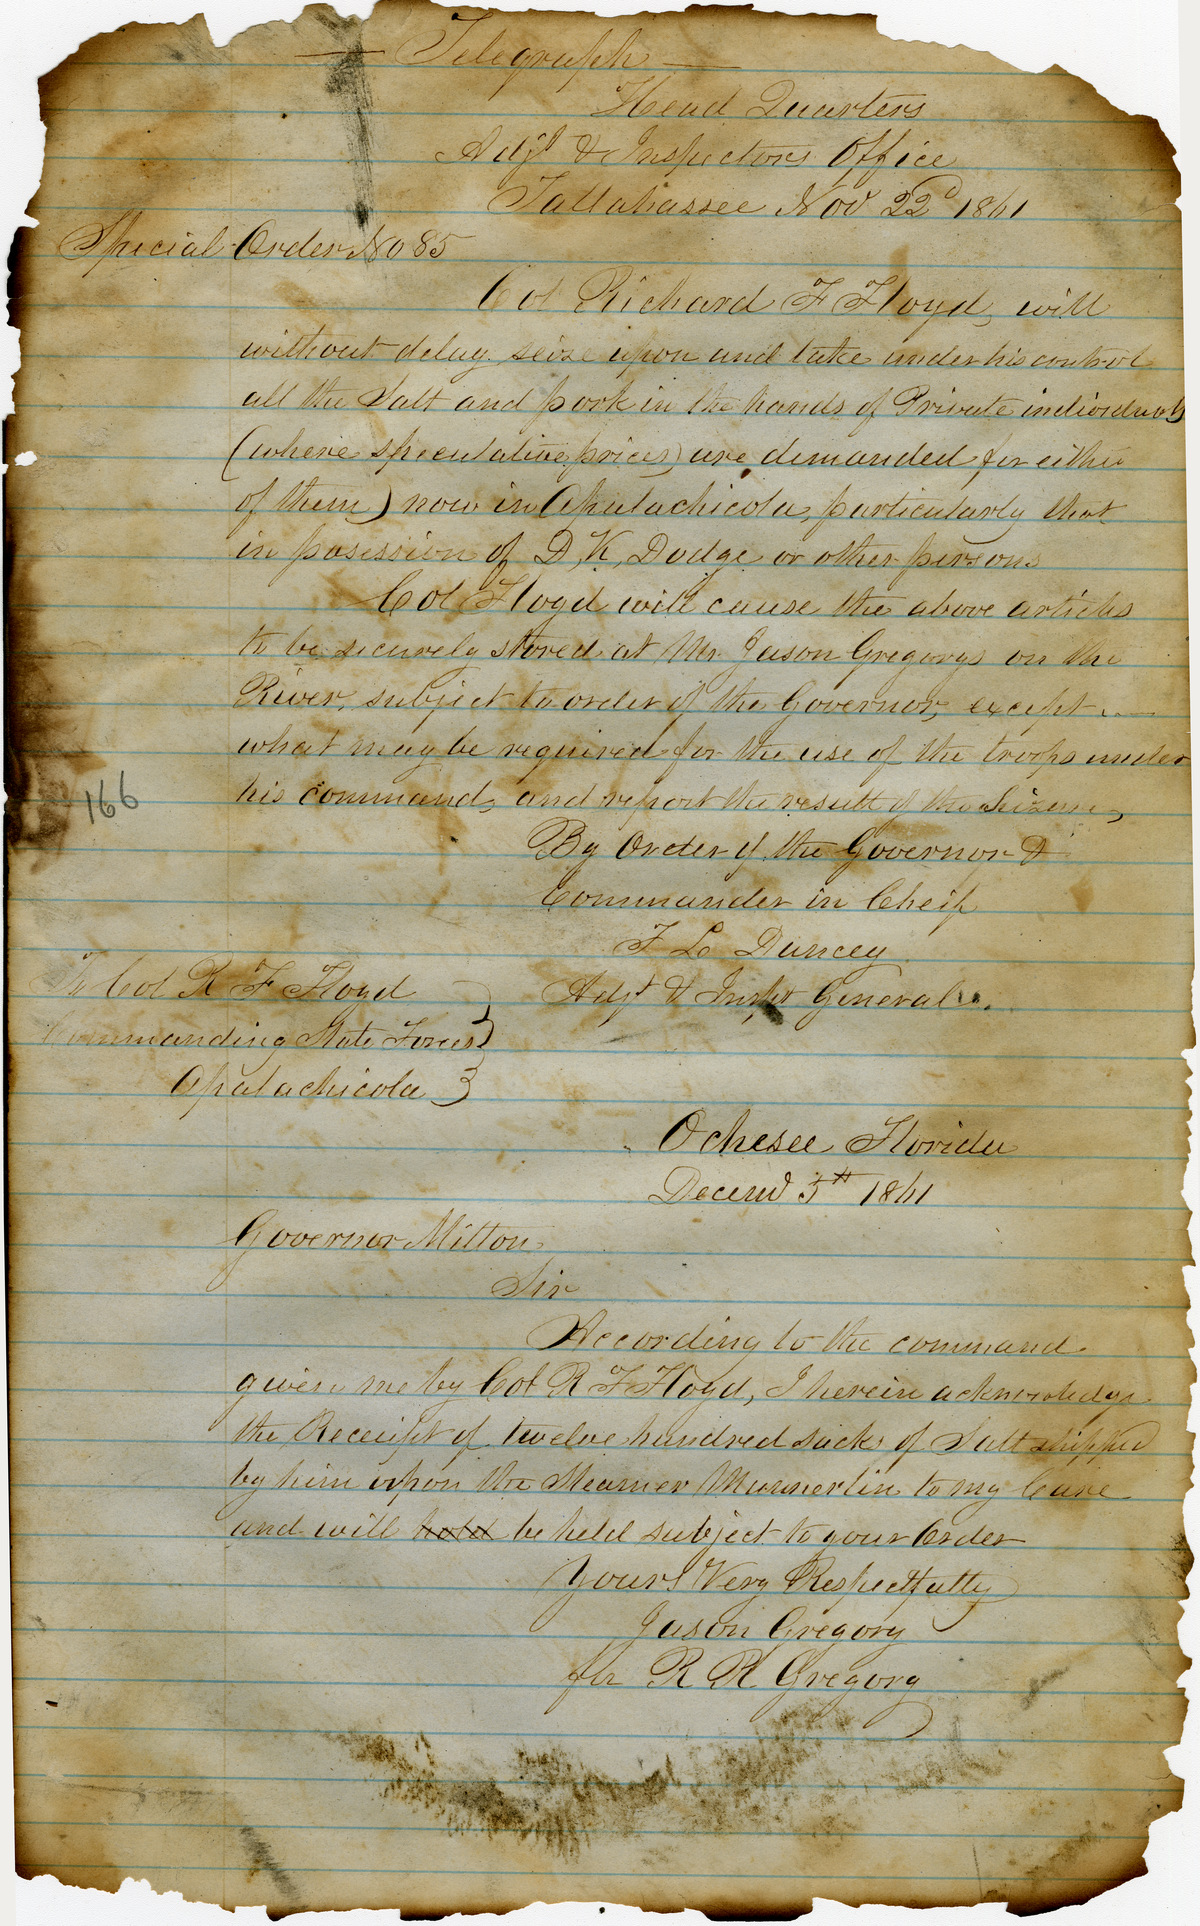 — Telegraph —
Head Quarters
Adjt & Inspectors Office
Tallahassee Nov 22d 1861
Special Order No 85
Col Richard F Floyd, will
without delay seize upon and take under his control
all the Salt and pork in the hands of Private individuals
(where speculative prices) are demanded for either
of them) now in Apalachicola, particularly that
in posession of D, K, Dodge or other persons
Col Floyd will cause the above articles
to be securely stored at Mr Jason Gregorys on the
River, subject to order of the Governor, except —
what may be required for the use of the troops under
his command, and report the result of the Seizure,
166
By Order of the Governor &
Commander in Cheif
F L Dancey
Adjt & Inspt General.
To Col R F Floyd
Commanding State Forces
Apalachicola
Ochesee Florida
Decemb 5th 1861
Governor Milton
Sir
According to the command
given me by Col R F Floyd, I herein acknowledge
the Receipt of twelve hundred sacks of Salt shipped
by him upon the Steamer Munnerlin to my Care
and will hold be held subject to your Order
Yours Very Respectfully
Jason Gregory
for R R Gregory